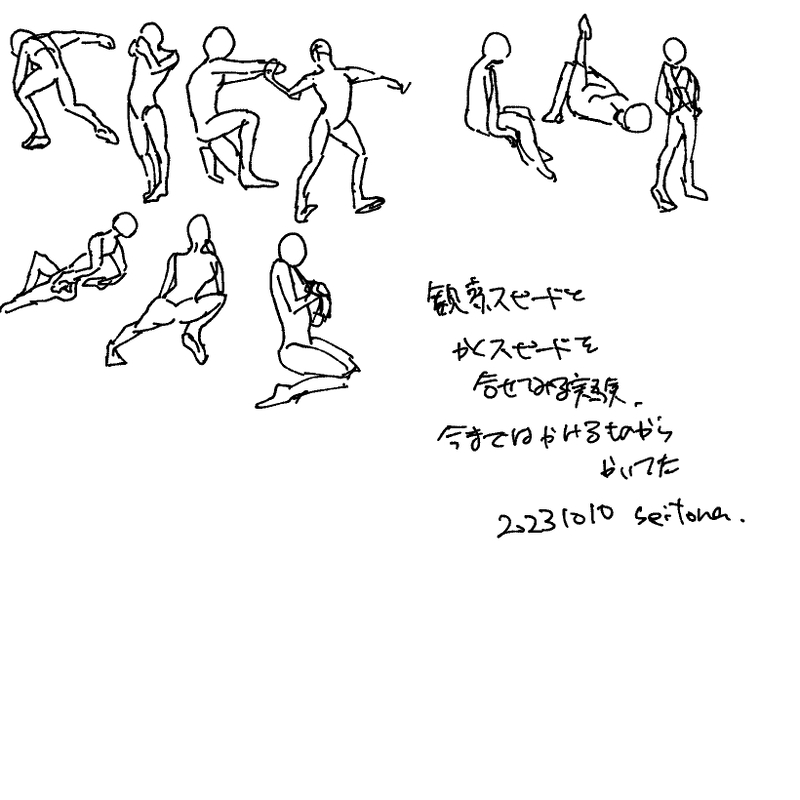 観察スピードと
かくスピードを
合せてみる実験.
今まではかけるものから
かいてた
20231010 seitona.